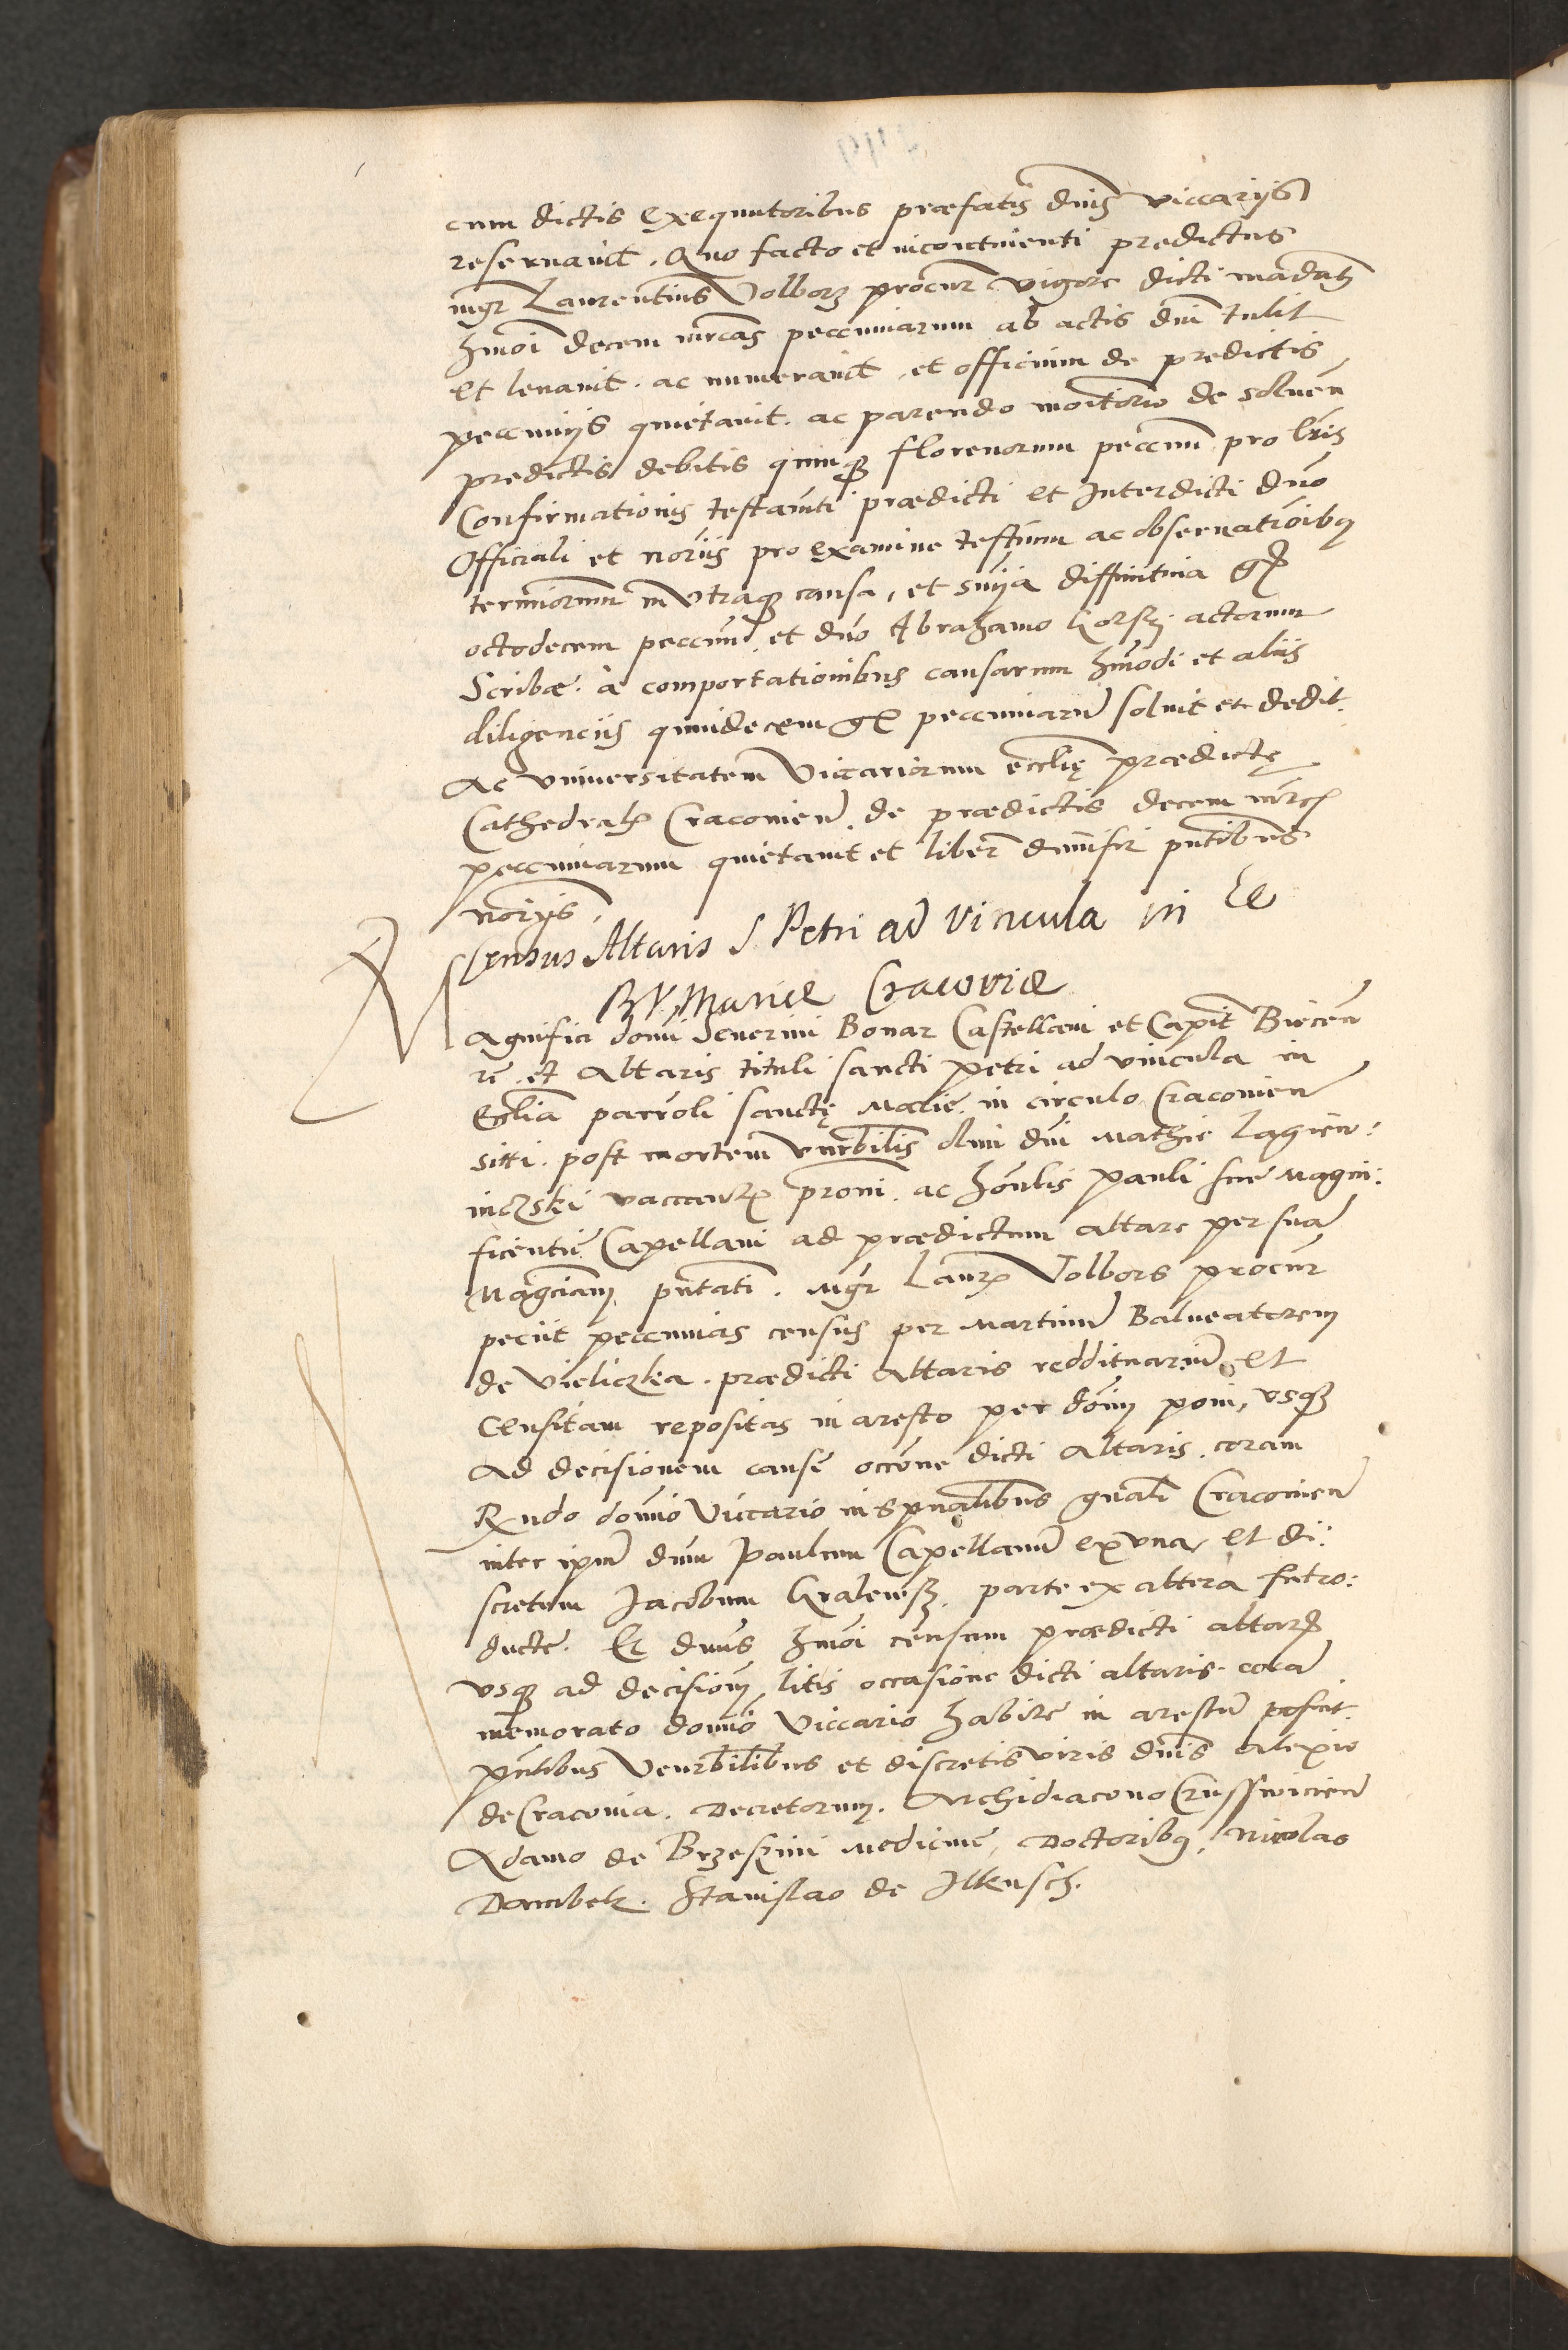 cum dictis exequutoribus præfatis dnis viccarijs
reseruauit. Quo facto et incontinenti predictus
mgr Laurentius Volborz procur vigore dicti mandati
hmoi decem mrcas peccuniarum ab actis dni tulit
et leuauit. ac numerauit, et officium de predictis
peccunijs quietauit. ac parendo monitorio de soluen
predictis debitis quinq florenorum peccuni pro lris
Confirmationis testamti prædicti et Interdicti dno
Officiali et noriis pro examine testium ac obseruatioibq
terminorum in vtraq causa, et snija diffinitiua gr
octodecem peccuni et dno Abrahamo actorum
Scribæ. à comportationibus causarum hmodi et aliis
diligenciis quindecem gr peccuniaru soluit et dedit.
Ac vniuersitatem Viccariorum ecclię prædictę
Cathedralis Cracouien de prædictis decem mrcis
peccuniarum quietauit et liber dimisit pntibus
norijs.
Census Altaris S Petri ad Vincula in Ec
B V Mariæ Cracoviæ
Magnifici domi Seuerini Bonar Castellani et Capit Biecen
re. et Altaris tituli sancti Petri ad vincula in
Ecclia parroli sanctę Marie in circulo Cracouien
siti. post mortem vnrbilis olim dni Mathie Lagiew:
niczski vaccantis proni. ac honlis Pauli sue Magni:
ficentie Capellani ad prædictum altare per sua
Magciam pntati. Mgr Laur Volbors procur
peciit peccunias census per Martinu Balneatorem
de Vieliczka. prædicti Altaris reddituariu et
Censitam repositas in aresto per domi poni, vsq
ad decisionem cause occone dicti Altaris. coram
Rndo domno Viccario in spualibus gnali Cracouien
inter ipm dnm Paulum Capellanu ex vna, et di:
scretum Jacobum parte ex altera Intro:
ducte. Et dnus hmoi censum prædicti altaris
vsq ad decisiom litis occasione dicti altaris. cora
memorato domno Viccario habite in arestu posuit.
pntibus Venrbilibus et discretis viris dnis Alexio
de Cracouia. Decretorum. Archidiacono Crusswicien
Adamo de Brzeszini Medicine, Doctoribq, Nicolao
Dambek. Stanislao de Ilkusch.